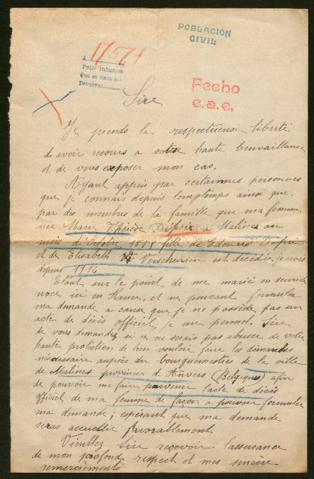 POBLACIÓN
CIVIL
Fecho
e.a.e.
Sire
Je prends la respectueuse liberté
d'avoir recours à votre haute bienveillance
et de vous exposer mon cas.
Ayant appris par certaines personnes
que je connais depuis longtemps ainsi que
par des membres de la famille que ma femme
née Marie Thérèse à Malines au
mois d'Octobre fille de Edouard
et de Elisabeth est décédée
depuis 1914
Etant sur le point de me marier en secondes
noces ici en France, et ne pouvant formuler
ma demande à cause que je ne possède pas un
acte de décès officiel, je me permets, Sire
de vous demander si ce ne serais pas abuser de votre
haute protection de bien vouloir faire les démarches
nécessaires auprès du bourgmestre de la ville
de Malines province d'Anvers (Belgique) afin
de pouvoir me faire parvenir l'acte de décès
officiel de ma femme de façon à pouvoir formuler
ma demande; espérant que ma demande
sera accueillie favorablement.
Veuillez Sire recevoir l'assurance
de mon profond respect et mes sincères
remerciements